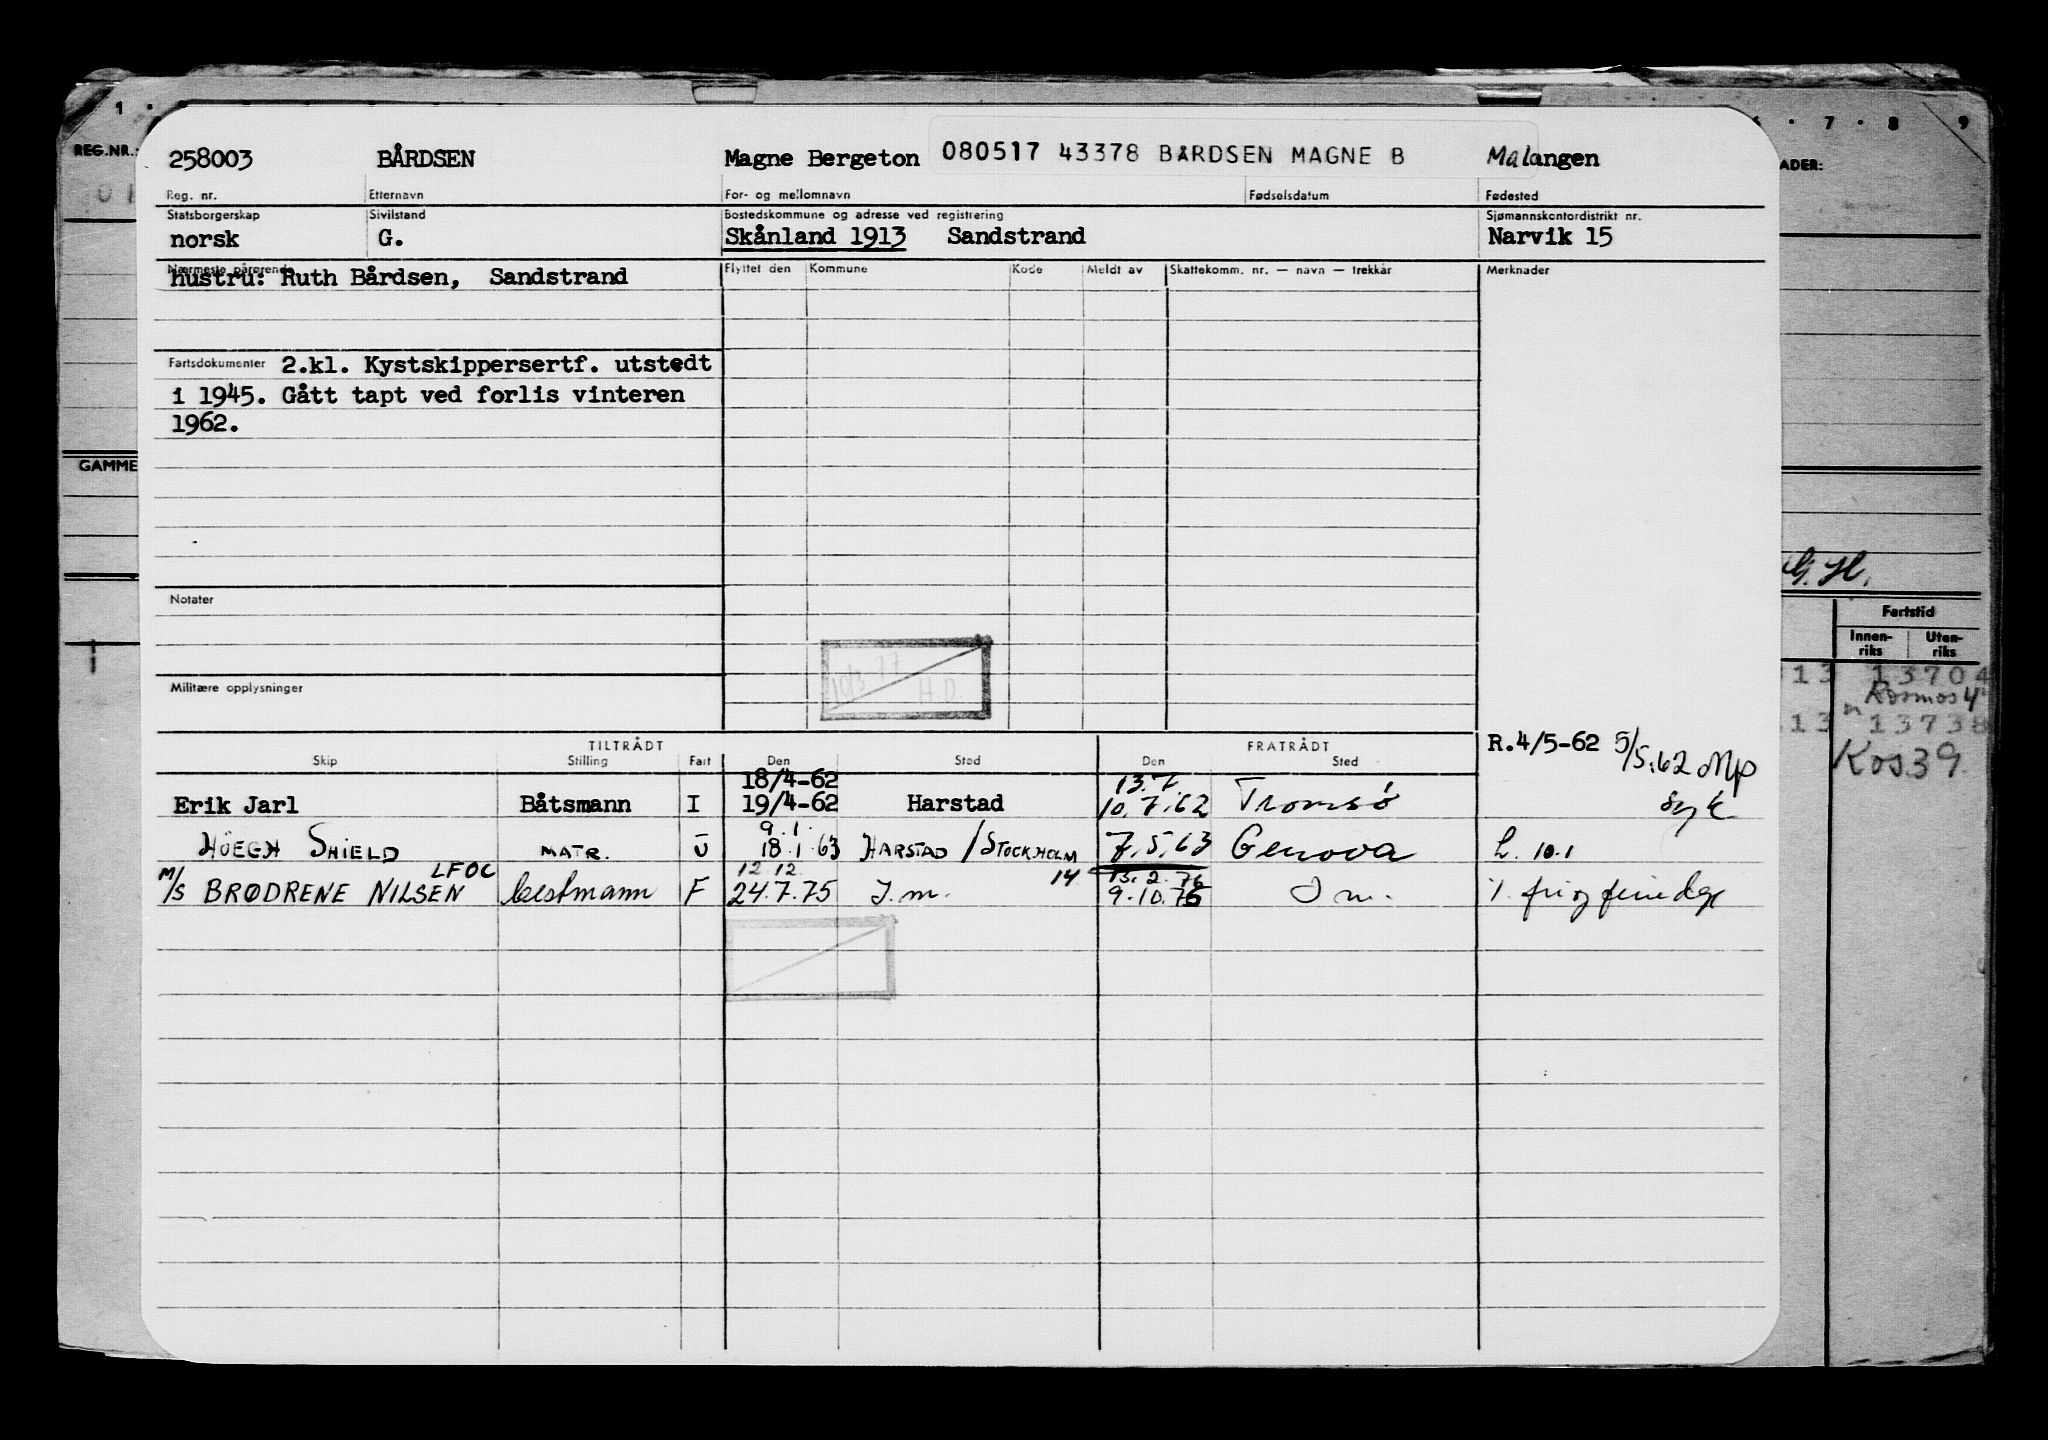 1 . 6 . 7 . 8 9
REG.NR.: ADER:
258003 BÅRDSEN Magne Bergeton 080517 43378 BÅRDSEN MAGNE B Malangen
Reg. nr. Etternavn For- og mellomnavn Fødselsdatum Fødested
Statsborgerskap Sivilstand Bostedskommune og adresse ved registrering Sjømannskontordistrikt nr.
norsk G. Skånland 1913 Sandstrand Narvik 15
Nærmeste pårørende Flyttet den Kommune Kode Meldt av Skattekomm. nr. — navn — trekkår Merknader
hustru: Ruth Bårdsen, Sandstrand
Fartsdokumenter 2.kl. Kystskippersertf. utstedt
i 1945. Gått tapt ved forlis vinteren
1962.
GAMME
Notater
Fartstid
Innen-riks Uten-riks
10/3-77 H D.
Militære opplysninger
13 13704
Kosmos 4
13 13738
Kos.39.
TILTRÅDT FRATRÅDT R.4/5-62 5/5.62 Mp
Skip Stilling Fart Den Sted Den Sted
18/4-62 13.7.
Erik Jarl Båtsmann I 19/4-62 Harstad 10.7.62 Tromsø syk
9.1.
HÖEGH SHIELD MATR. U 18.1.63 HARSTAD/STOCKHOLM 7.5.63 Genova L. 10.1
LFOC 12.12. 14 13.2.76
M/S BRØDRENE NILSEN bestmann F 24.7.75 I.m. 9.10.75 I m.